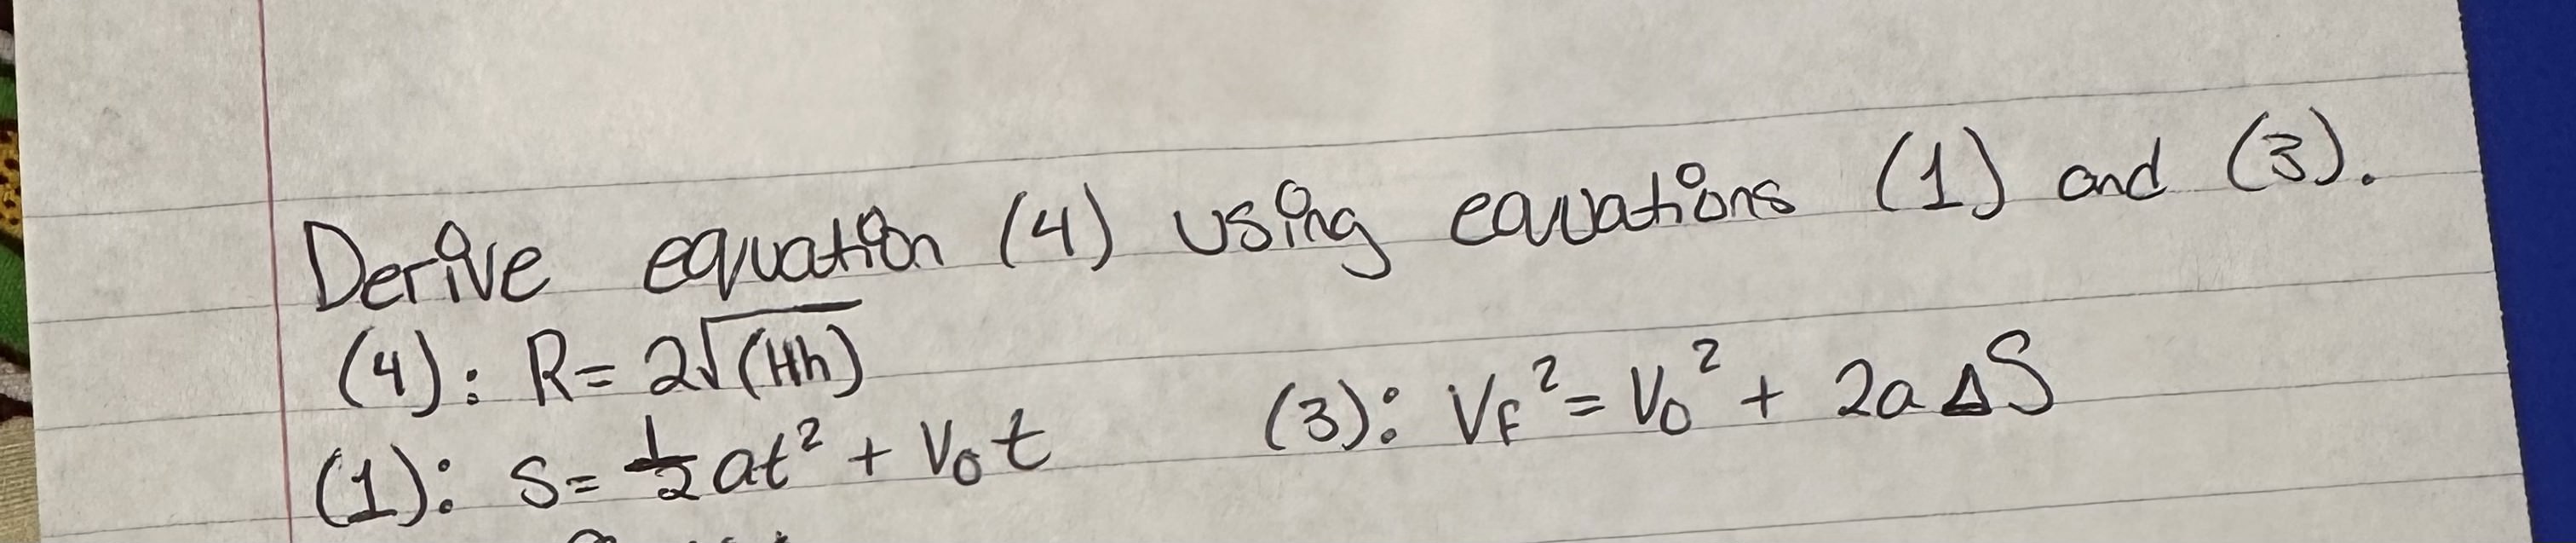 Derive equation (4) using equations (1) and (3).
(4): R = 2√(Hh)
(1): S = 1/2 at² + V₀t (3): V_F² = V₀² + 2a ΔS